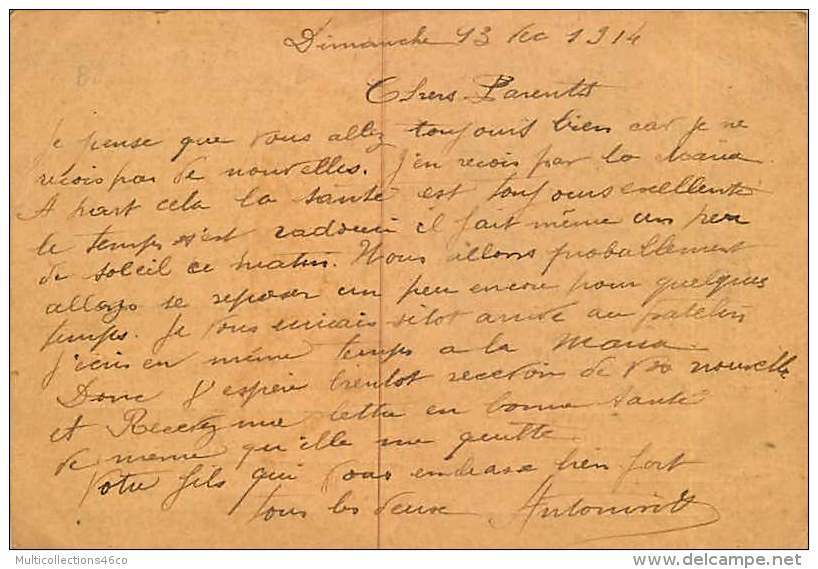 Dimanche 13 Dec 1914
Chers Parents
Je pense que vous allez toujours bien car je ne
reçois pas de nouvelles. J'en reçois par la Maria.
A part cela la santé est toujours excellente
le temps s'est radouci il fait même un peu
de soleil ce matin. Nous allons probablement
allons se reposer un peu encore pour quelques
temps. Je vous écrirais sitot arrivé au patelin
j'écris en même temps a la Maria.
Donc J'espère bientot recevoir de vos nouvelle
et Recevez ma lettre en bonne santé
de meme qu'elle me quitte.
Votre fils qui vous embrasse bien fort
tous les deux
Multicollections46co
www.delcampe.net